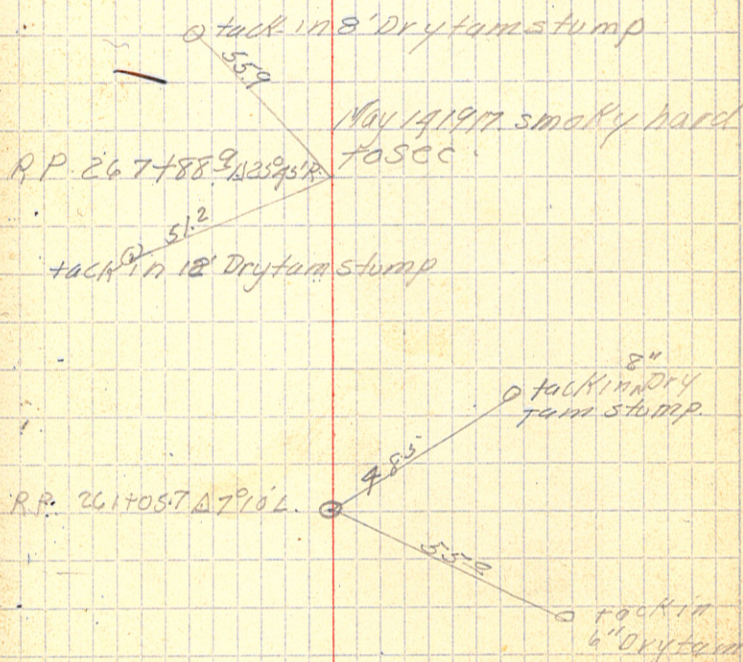 tack in 8' Dry tam stump
55.9
May 14 1917. smoky hard
to sec.
R.P. 267+88.9 Δ25°45'R.
51.2
tack in 12' Dry tam stump
8"
tack in ^ Dry
Tam stump.
48.5
R.P. 261+05.7 Δ7°10'L.
55.2
tack in
6" Dry tam